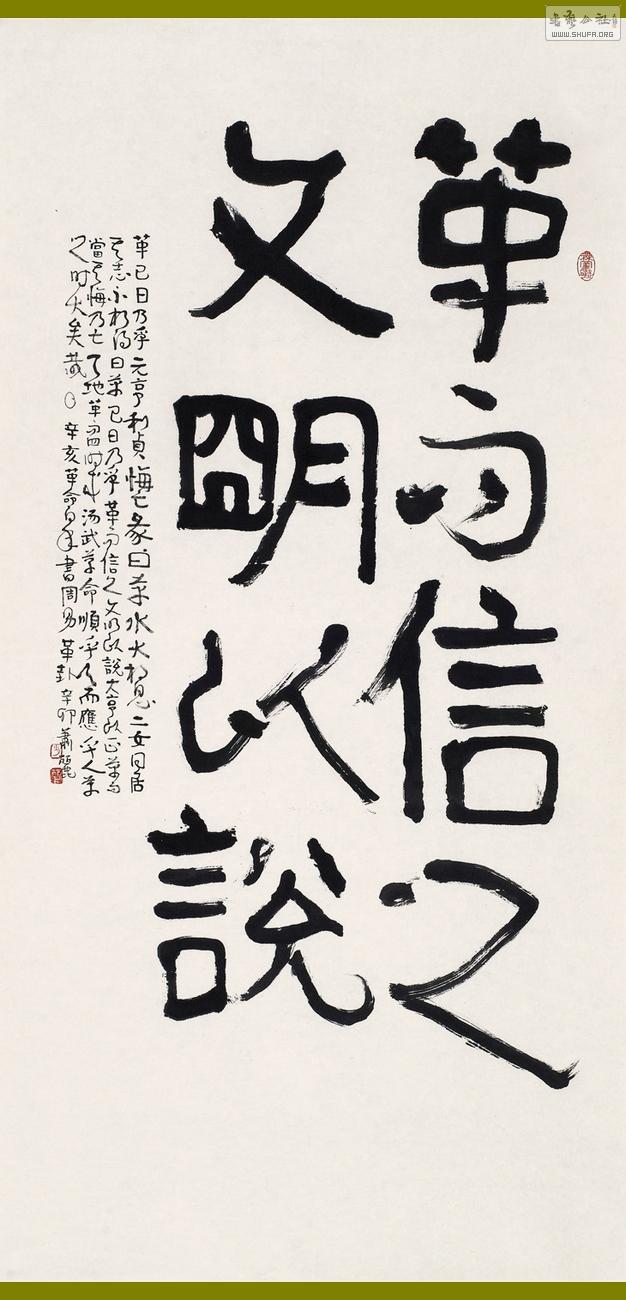 革而信之
文明以說
革已日乃孚元亨利貞悔亡彖曰革水火相息二女同居
其志不相得曰革已日乃孚革而信之文明以說大亨以正革而
當其悔乃亡天地革而四時成湯武革命順乎天而應乎人革
之時大矣哉 辛亥革命百年書周易革卦辛卯
WWW.SHUFA.ORG